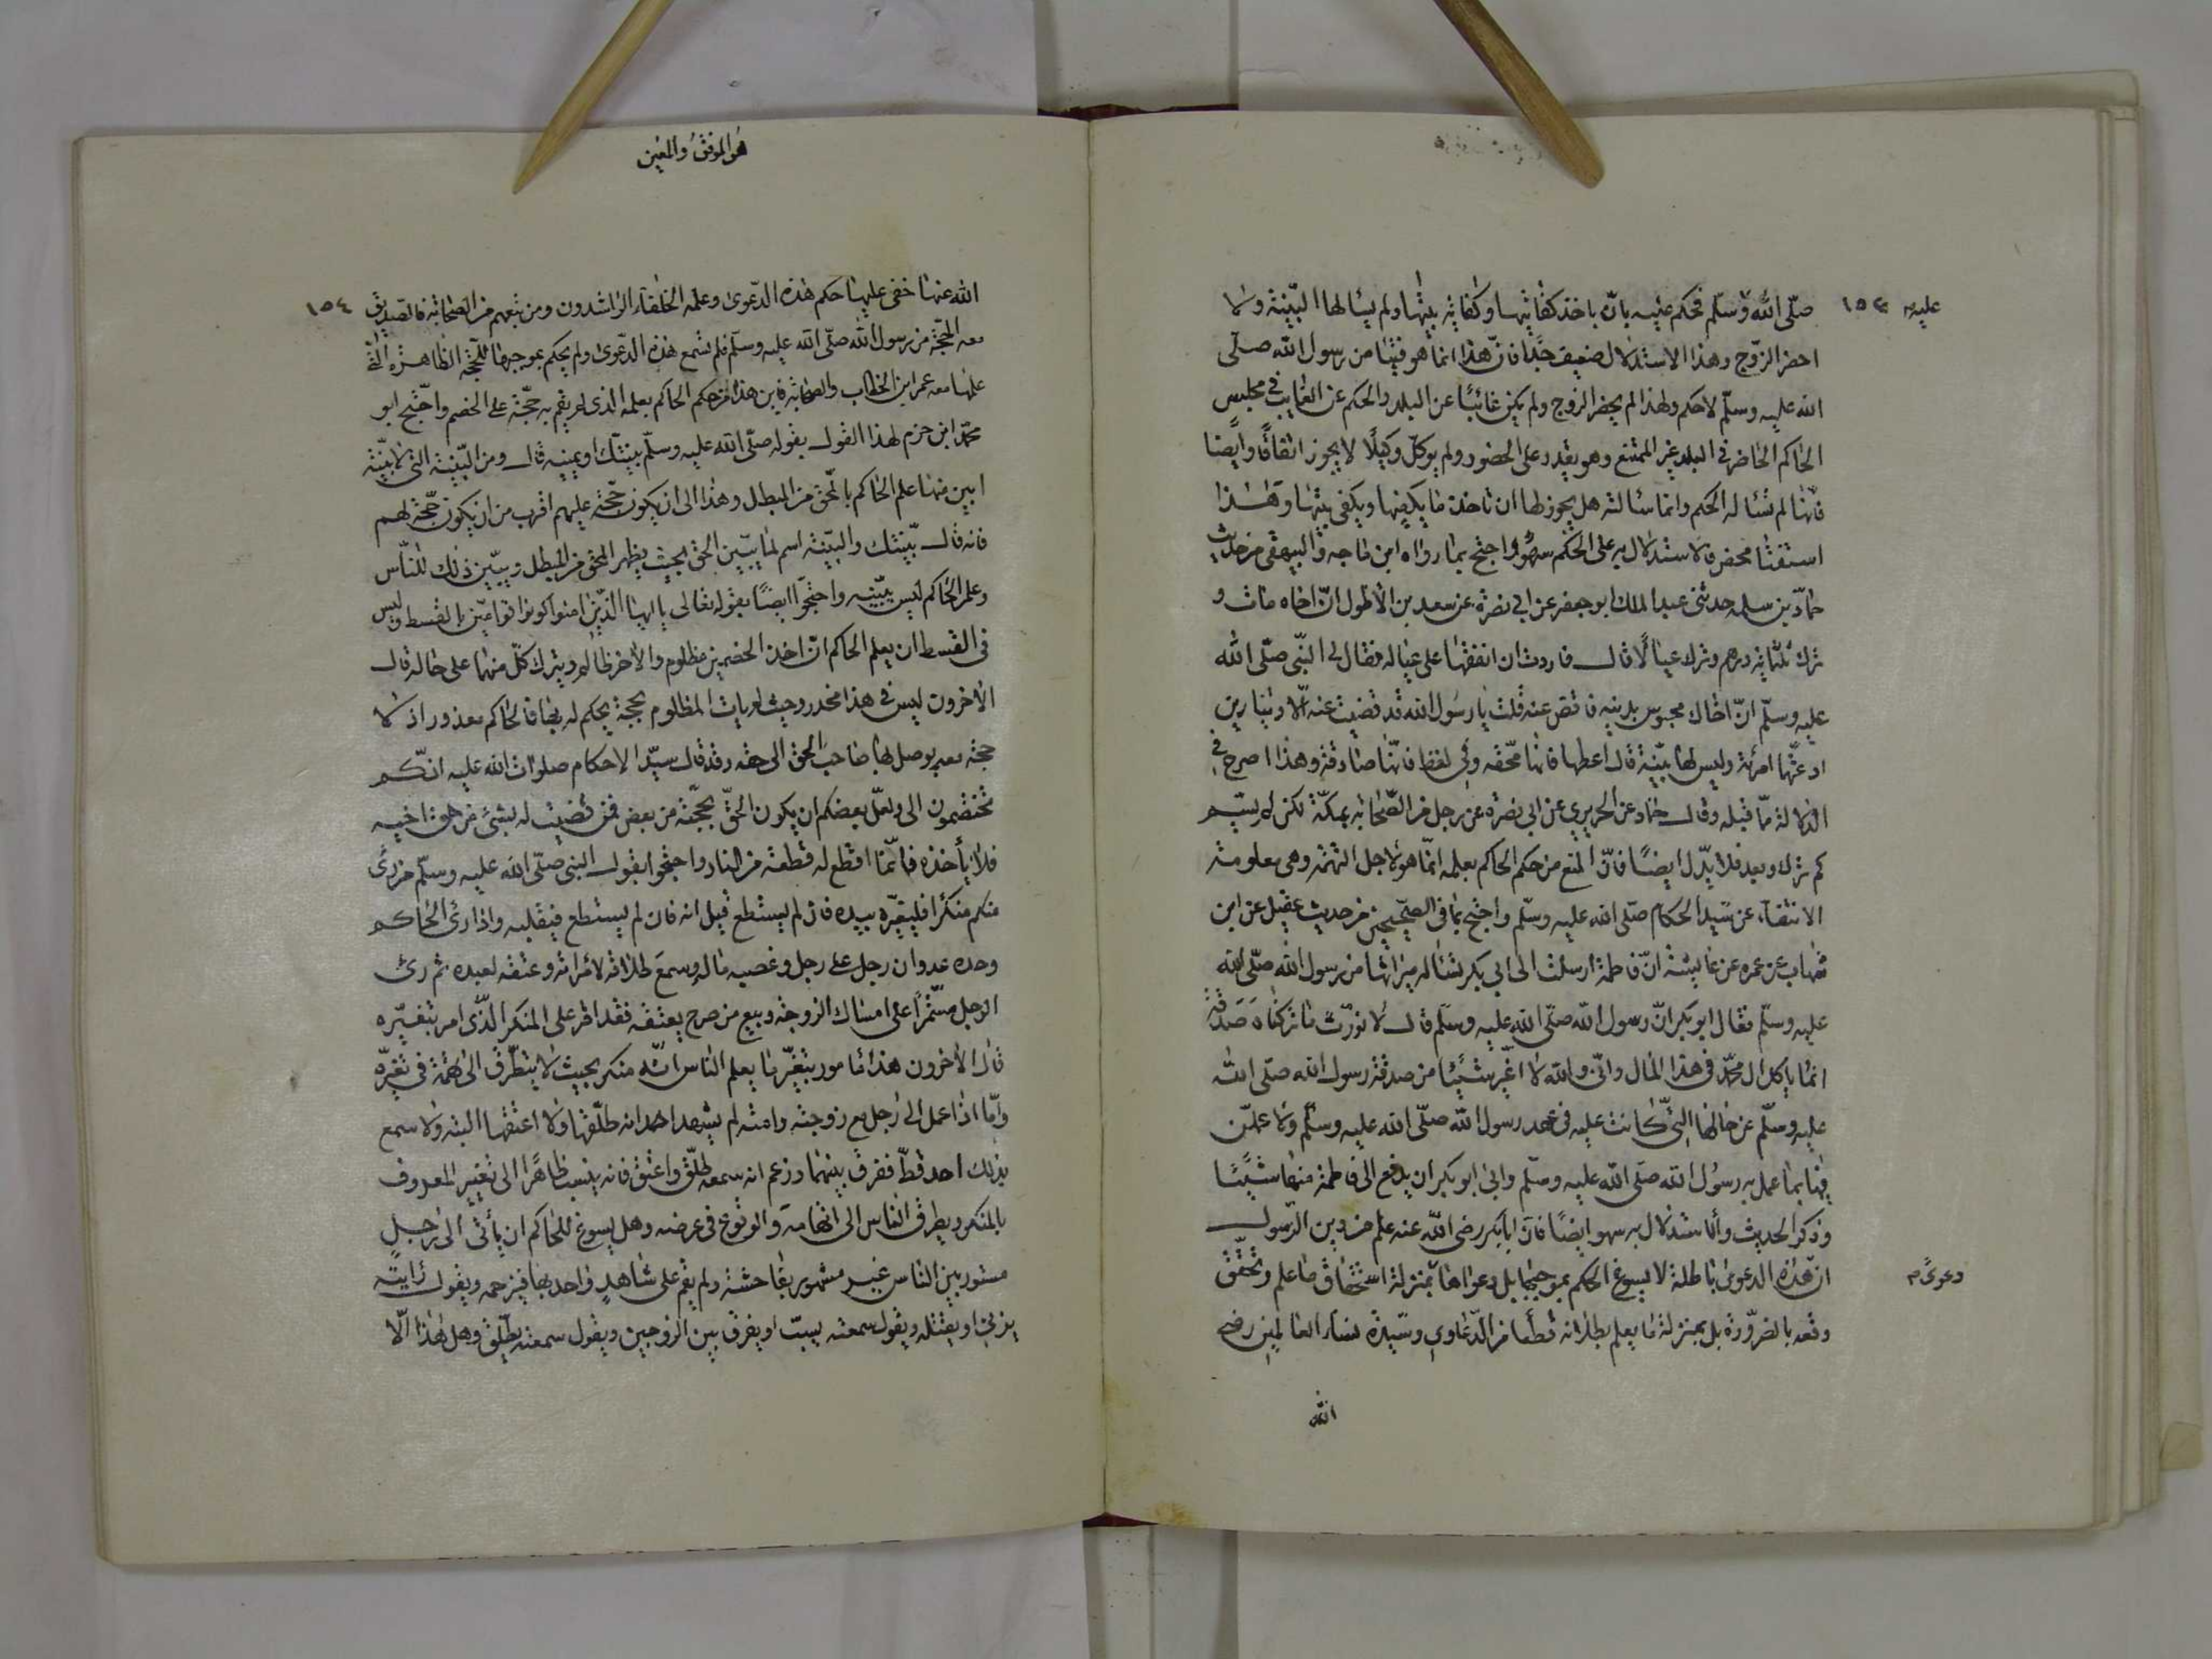 عليه م
١٥٣
صلّى الله وسلّم فحكم عليه بان ياخذ كفايتها وكفاية بنيها ولم يسالها البيّنة ولا
احضر الزوج وهذا الاستدلال ضعيف جدا فانّ هذا انما هو فتيا من رسول الله صلّى
الله عليه وسلّم لا حكم ولهذا لم يحضر الزوج ولم يكن غائبًا عن البلد والحكم عن الغايب في مجلس
الحاكم الحاضر في البلد غير الممتنع وهو يقدر على الحضور ولم يوكّل وكيلًا لا يجوز اتفاقًا وايضا
فانها لم تساله الحكم وانما سالته هل يجوز لها ان تاخذ ما يكفيها ويكفي بنيها وهذا
استفتا محض فالاستدلال به على الحكم سهو واحتج بما رواه ابن ماجه والبيهقى من حديث
حمّاد بن سلمه حدثنى عبد الملك ابو جعفر عن ابي نضرة عن سعد بن الاطول انّ اخاه مات و
ترك ثلثماية درهم وترك عيالًا قال فاردت ان انفقها على عياله فقال لى النبّى صلّى الله
عليه وسلّم انّ اخاك محبوس بدينه فاقض عنه قلت يا رسول الله قد قضيت عنه الّا دينارين
ادعتّها امرئة وليس لها بيّنة قال اعطها فانها محّقه وفي لفظ فانّها صادقة وهذا اصرح في
الدلالة ممّا قبله وقال حماد عن الجريرى عن ابي نضرة عن رجل من الصّحابة بمكّة لكن لم يسّم
كم ترك وبعد فلا يدّل ايضًا فانّ المنع من حكم الحاكم بعلمه انمّا هو لاجل التهمة وهى معلومة
الانتفآء عن سّيد الحكام صلّى الله عليه وسلّم واحتج بما في الصّحيحين من حديث عقيل عن ابن
شهاب عن عروه عن عايشة انّ فاطمة ارسلت الى ابي بكر تساله ميراثها من رسول الله صلّى الله
عليه وسلّم فقال ابو بكر انّ رسول الله صلّى الله عليه وسلّم قال لا نورّث ما تركناه صدقة
انما ياكل ال محمّد في هذا المال وانّي والله لا اغّير شيئًا من صدقة رسول الله صلّى الله
عليه وسلّم عن حالها الّتى كانت عليه في عهد رسول الله صلّى الله عليه وسلّم ولا عملّن
فيها بما عمل به رسول الله صلّى الله عليه وسلّم وابى ابو بكر ان يدفع الى فاطمة منها شيئًا
وذكر الحديث والاستدلال به سهو ايضًا فانّ ابابكر رضى الله عنه علم من دين الرّسول
انّ هذه الدعوى باطلة لا يسوغ الحكم بموجبها بل دعواها بمنزلة استحقاق ما علم وتحقّق
دعوى م
دفعه بالضرّورة بل بمنزلة ما يعلم بطلانه قطعا من الدّعاوى وسيدة نساء العالمين رضى
الله
هو الموفق والمعين
١٥٤
الله عنها خفى عليها حكم هذه الدّعوى وعلمه الخلفآء الرّاشدون ومن تبعهم من الصحابة فالصّديق
معه الحجّة من رسول الله صلّى الله عليه وسلّم فلم تسمع هذه الدّعوى ولم يحكم بموجبها للحجّة الظاهرة التى
علمها معه عمر ابن الخطاب والصحابة فاين هذا من حكم الحاكم بعلمه الذى لم يقم به حجّة على الخصم واحّتج ابو
محمّد ابن حزم لهذا القول بقوله صلّى الله عليه وسلّم بينتّك او يمينه قال ومن البّينة التى لا بيّنة
ابين منها علم الحاكم بالمحّق من المبطل وهذا الى ان يكون حّجة عليهم اقرب من ان يكون حّجة لهم
فانه قال بيّنتك والبّينة اسم لما يبّين الحق بحيث يظهر المحق من المبطل ويبيّن ذلك للنّاس
وعلم الحاكم ليس ببّينه واحتجّوا ايضًا بقوله تعالى يا ايها الذّين امنوا كونوا قواميّن بالقسط وليس
في القسط ان يعلم الحاكم ان احد الخصمين مظلوم والاخر ظالم ويترك كلّ منهما على حاله قال
الاخرون ليس في هذا محذور وحيث لم يات المظلوم بحجة يحكم له بها فالحاكم معذور اذ لا
حجة معه يوصل بها صاحب الحق الى حقه وقد قال سيّد الاحكام صلوات الله عليه انكّم
تختصمون الى ولعلّ بعضكم ان يكون الحّن بحجّته من بعض فمن قضيت له بشئ من حق اخيه
فلا ياخذه فانّما اقطع له قطعة من النار واحتجوا بقول النبى صلّى الله عليه وسلّم من رأى
منكم منكرا فليغيّره بيده فان لم يستطع فبلسانه فان لم يستطع فبقلبه واذا رأى الحاكم
وحده عدوان رجل على رجل وغصبه ماله وسمع طلاقه لامراته وعتقه لعبده ثم رأى
الرجل مستّمرًا على امساك الزوجة وبيع من صرح بعتقه فقد اقر على المنكر الذّى امر بتغييره
قال الاخرون هذا مامور بتغيّر ما يعلم الناس انّه منكر بحيث لا يتطّرق الى تهمة في تغيّره
وامّا اذا عمل الى رجل مع زوجته وامته لم يشهد احد انه طلّقها ولا اعتقها البته ولا سمع
بذلك احد قطّ ففرق بينهما وزعم انه سمعه طلّق واعتق فانه ينسب ظاهرًا الى تغيير المعروف
بالمنكر ويطرق الناس الى اتهامه والوقوع في عرضه وهل يسوغ للحاكم ان يأتى الى رجل
مستور بين الناس غير مشهور بفاحشة ولم يقم على شاهد واحد بها فيرجمه ويقول رايته
يزنى او يقتله ويقول سمعته يسبّ او يفرق بين الزوجين ويقول سمعته يطلّق وهل هذا الّا